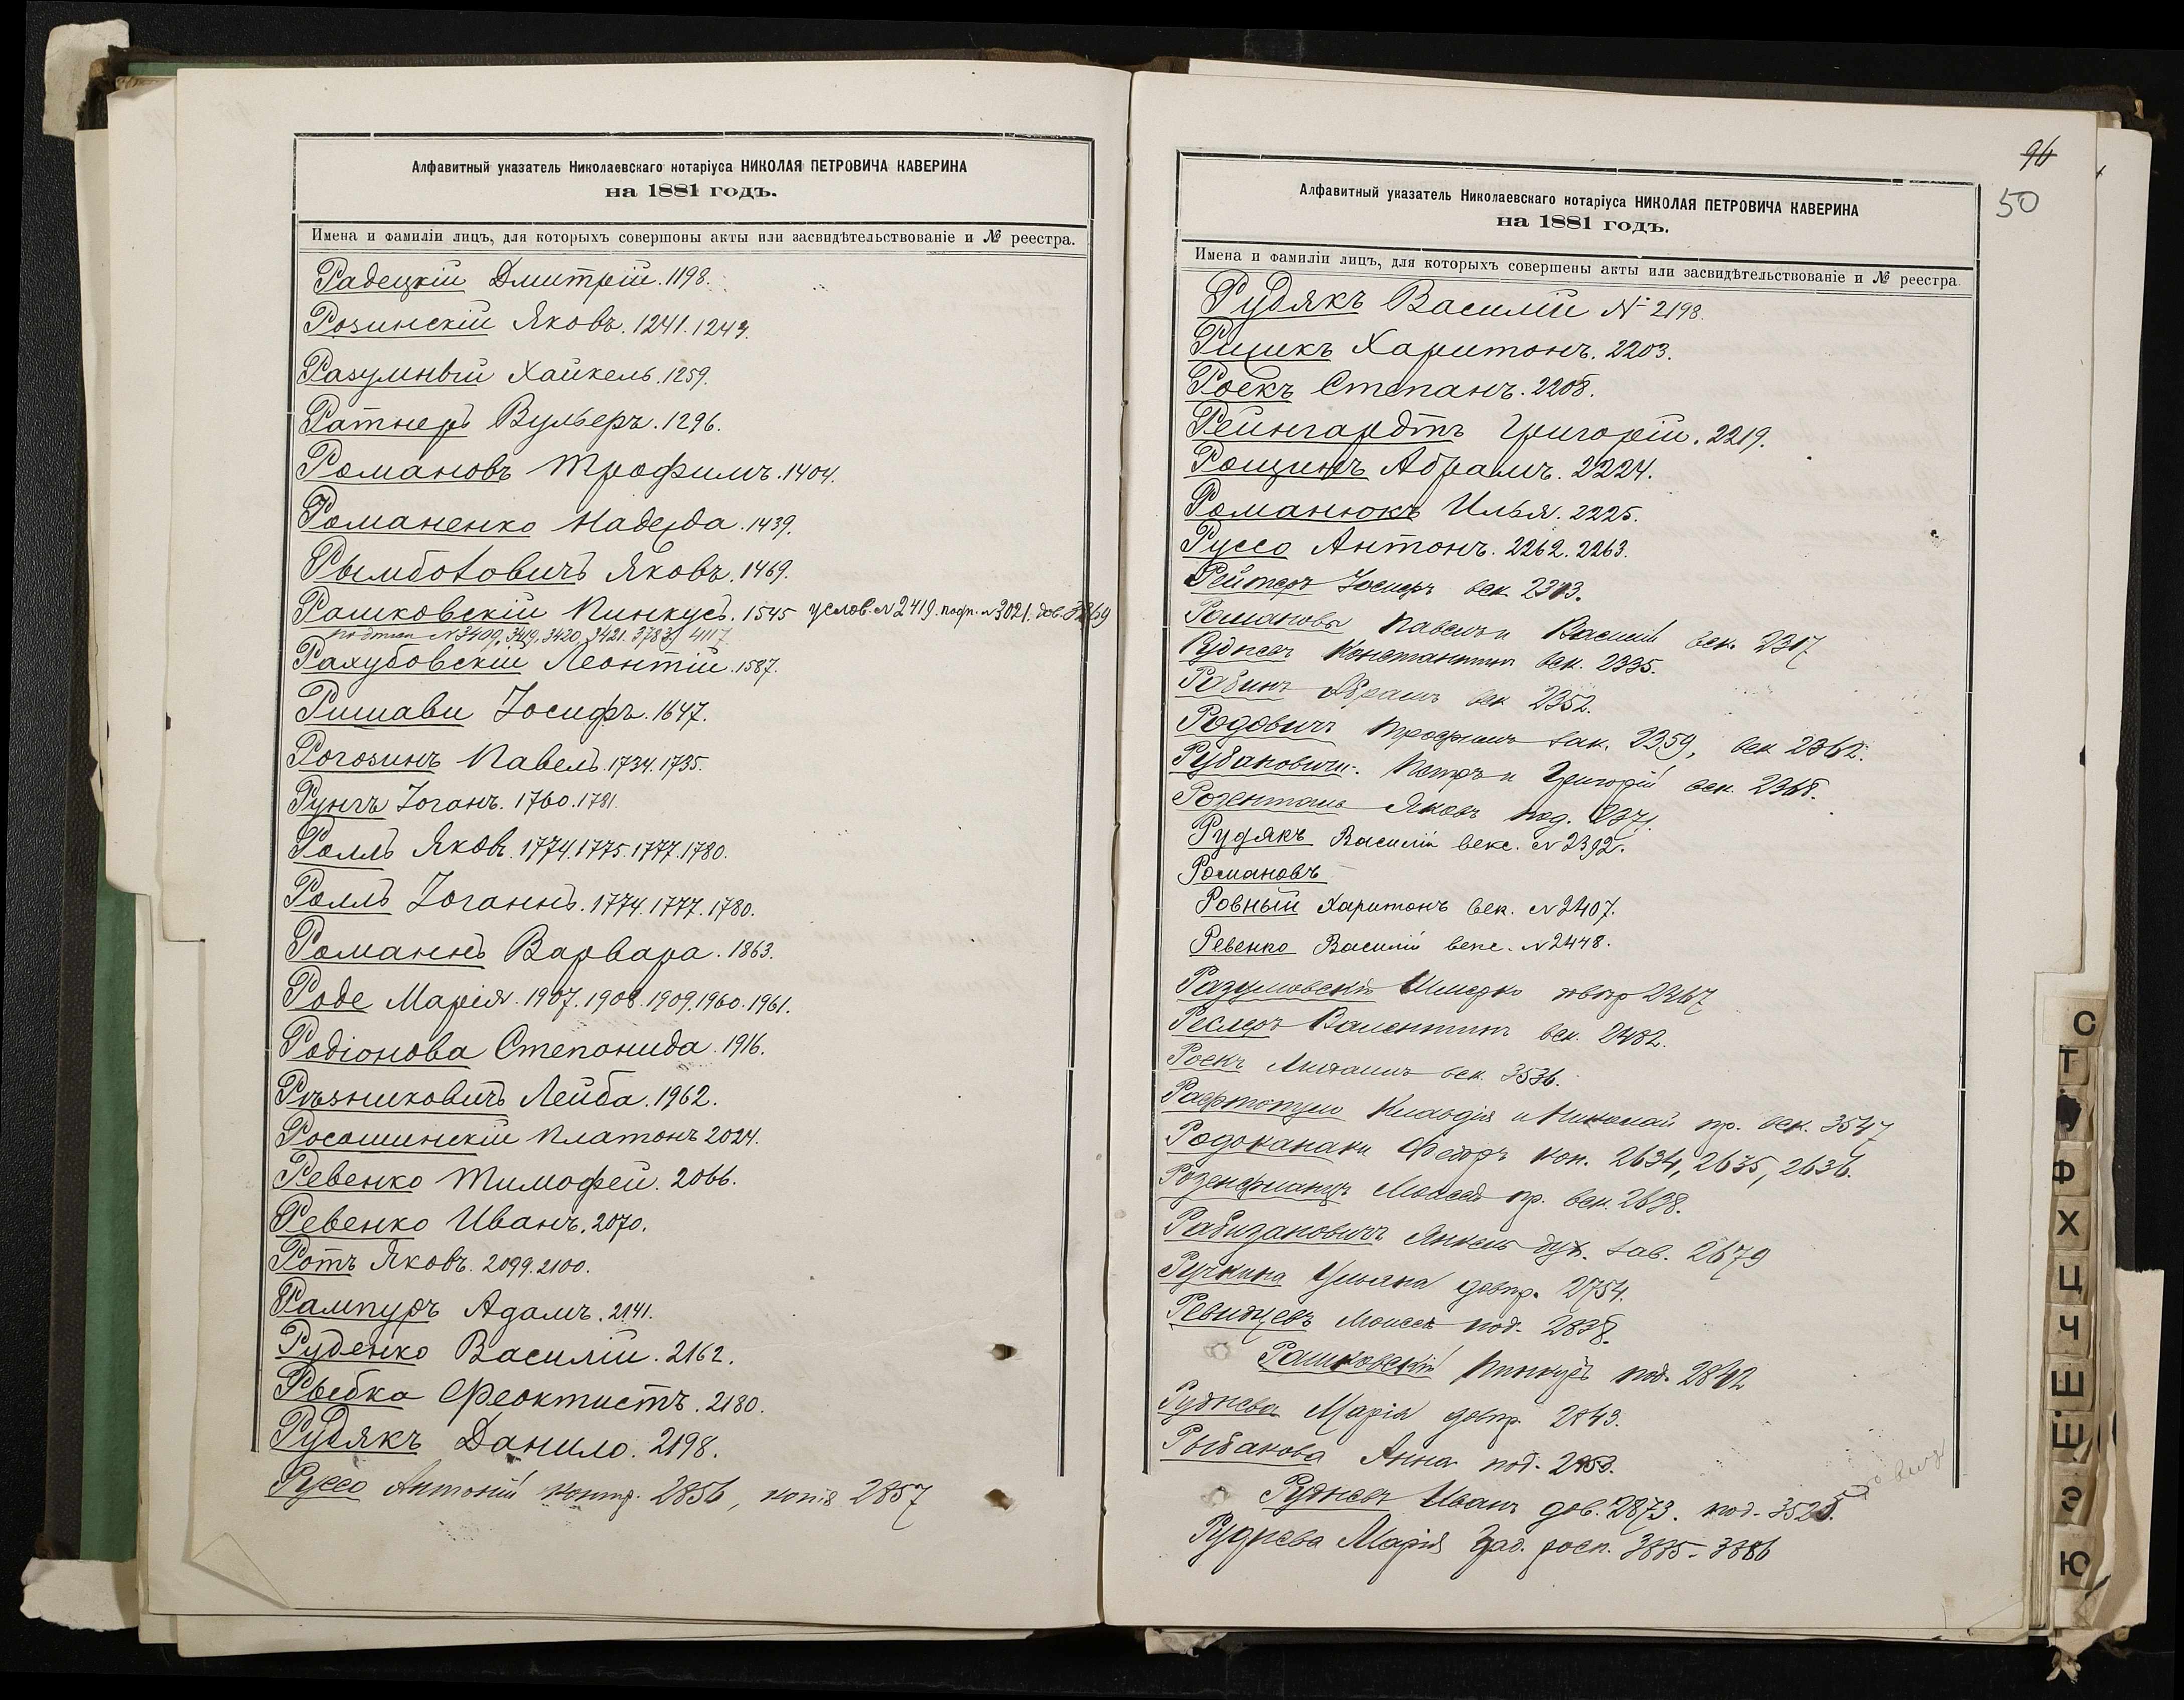 Алфавитный указатель Николаевскаго нотаріуса НИКОЛАЯ ПЕТРОВИЧА КАВЕРИНА
на 1881 годъ.
Имена и фамиліи лицъ, для которыхъ совершоны акты или засвидѣтельствованіе и № реестра.
Радецкій Дмитрій. 1198.
Розинскій Яковъ. 1241. 1243.
Разумный Хайкель. 1259.
Ратнеръ Вульферъ. 1296.
Романовъ Трофимъ. 1404.
Романенко Надежда. 1439.
Рымботовичъ Яковъ. 1469.
Рашковскій Пинкусъ. 1545 услов. №2419. подп. №3021. дов.
№3409, 3419, 3420, 3421. 3783, 4117
Рахубовскій Леонтій. 1587.
Ришави Іосифъ. 1647.
Рогозинъ Павелъ. 1734. 1735.
Рунгъ Іоганъ. 1760. 1781.
Ролль Яковъ. 1774. 1775. 1777. 1780.
Ролль Іоганнъ. 1774. 1777. 1780.
Романнъ Варвара. 1863.
Роде Марія. 1907. 1908. 1909. 1960. 1961.
Родіонова Степонида. 1916.
Рѣзниковичъ Лейба. 1962.
Росошинскій Платонъ 2024.
Ревенко Тимофей. 2066.
Ревенко Иванъ. 2070.
Ротъ Яковъ. 2099. 2100.
Рампуръ Адамъ. 2141.
Руденко Василій. 2162.
Рыбка Феоктистъ. 2180.
Рудякъ Данило. 2198.
Руссо Антоній контр. 2856, копія 2857
96
50
Алфавитный указатель Николаевскаго нотаріуса НИКОЛАЯ ПЕТРОВИЧА КАВЕРИНА
на 1881 годъ.
Имена и фамиліи лицъ, для которыхъ совершены акты или засвидѣтельствованіе и № реестра.
Рудякъ Василій № 2198.
Харитонъ. 2203.
Роекъ Степанъ. 2208.
Рейнгардтъ Григорій. 2219.
Рощинъ Абрамъ. 2224.
Романюкъ Илья. 2225.
Руссо Антонъ. 2262. 2263.
Рейтеръ Іосифъ век. 2303.
Романовы Павелъ и Василій век. 2317
Рудневъ Константинъ век. 2335.
Рабинъ Абрамъ век 2352.
Родовичъ Трофимъ зак. 2359, век 2362.
Рубановичи Петръ и Григорій век. 2368.
Розенталь Яковъ под. 2371.
Рудякъ Василій векс. №2392.
Романовъ
Ровный Харитонъ век. №2407.
Ревенко Василій векс. №2448.
Разумовскій Шмерко 2467
Реслеръ Валентинъ век. 2482.
Роекъ век. 3536.
Клавдія и Николай пр. век. 3547
Родоканаки Федоръ коп. 2634, 2635, 2636.
Розенфланцъ пр. век. 2638.
Рабизановичъ Янкель дух. зав. 2679
Ручкина Ульяна довпр. 2754.
Моисей под. 2838.
Рашковскій Пинкусъ под. 2842
Руднева Марія довпр. 2843.
Рыбакова Анна под. 2853.
Рудневъ Иванъ дов. 2873. под. 3525.
Руднева Марія росп. 3885-3886
С
Т
Ф
Х
Ц
Ч
Ш
Щ
Э
Ю